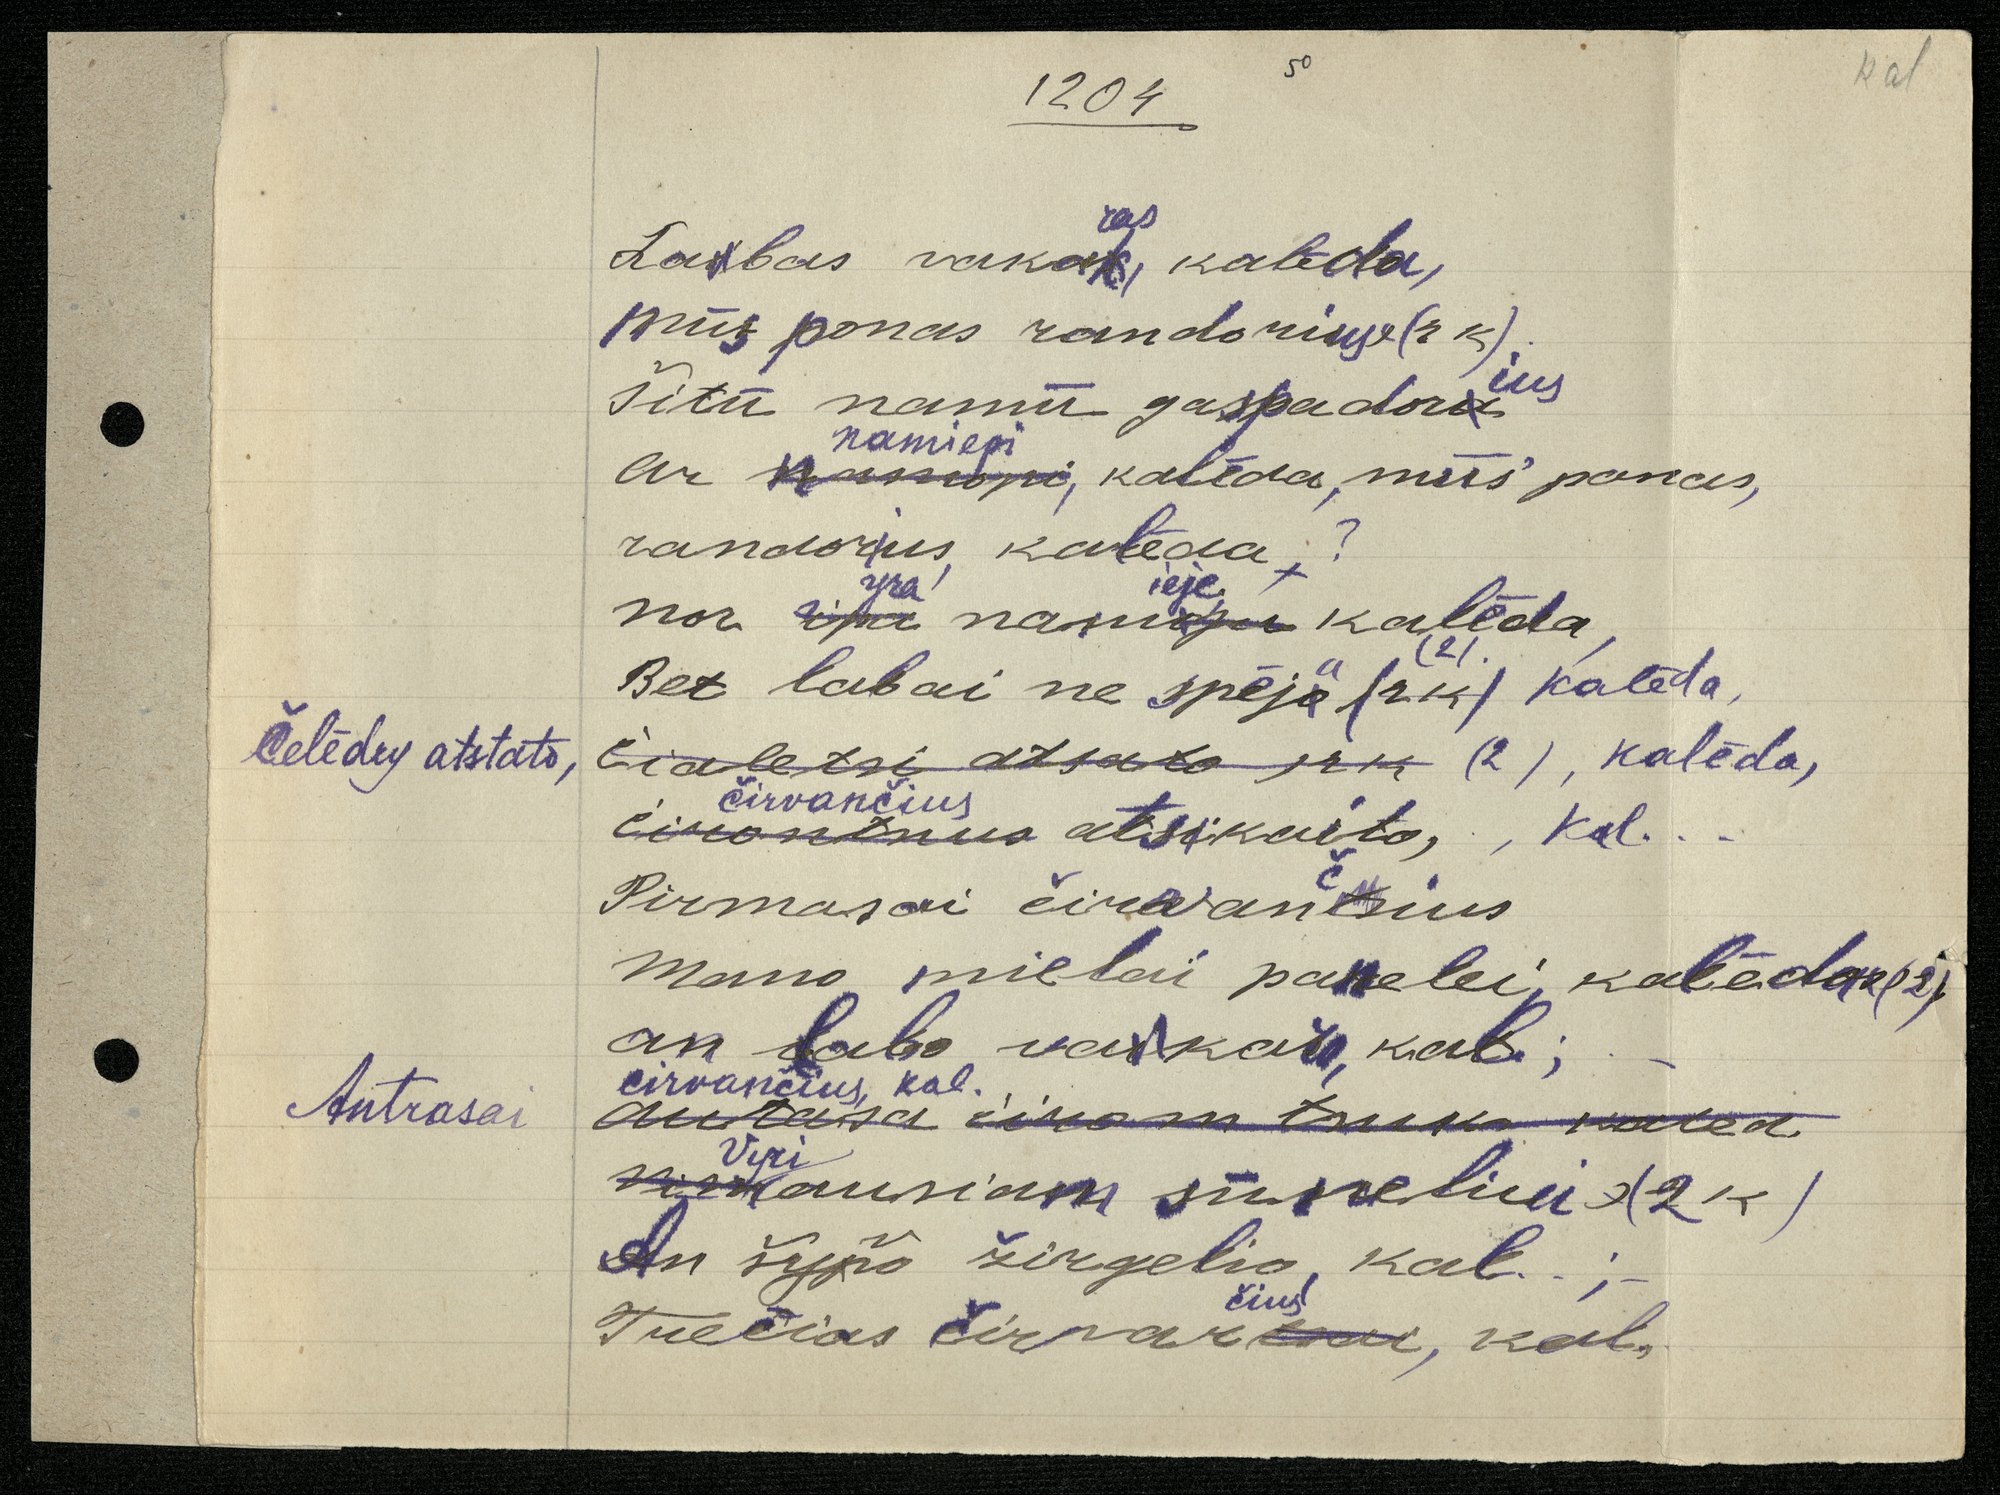 50
kal
1204
Labas vakaras, kalėda,
mūs ponas randorius (2 k).
Šitū namū gaspadorius
Ar namiepi, kalėda, mūs ponas,
randorius, kalėda?
nor yra namieje, kalėda,
Bet labai ne spėja (2). kalėda,
Čelėdny atstato, (2), kalėda,
čirvančius atsikaito, kal...
Pirmasai čirvančius
Mano mielai panelei, kalėda (2),
an labo vaikai, kal.;
Antrasai čirvančius, kal.
Vyriausiam sūneliui (2 k)
An žirgelio, kal..;
Trečias čirvančius, kal.